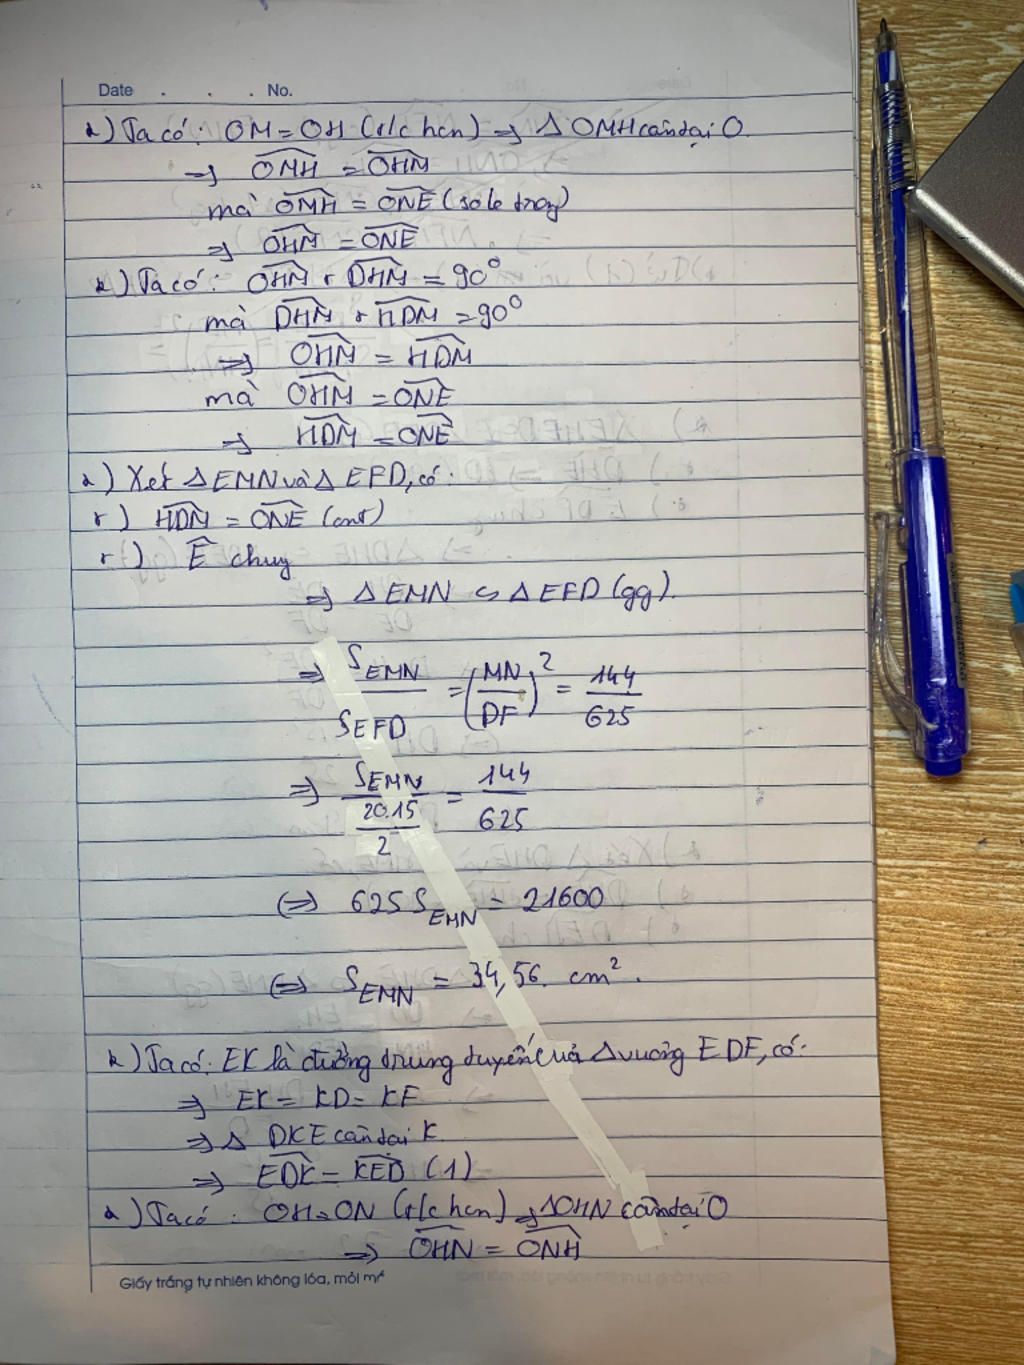 Date . . . No.
*) Ta có: OM = OH (t/c hcn) => Δ OMH cân tại O.
=> OMH = OHM
mà OMH = ONE (so le trong)
=> OHM = ONE
*) Ta có: OHM + DHM = 90°
mà DHM + HDM = 90°
=> OHM = HDM
mà OHM = ONE
=> HDM = ONE
*) Xét Δ EMN và Δ EFD, có:
+) HDM = ONE (cmt)
+) Ê chung
=> Δ EMN ᔕ Δ EFD (gg).
=> S_EMN / S_EFD = (MN / DF)² = 144 / 625
=> S_EMN / (20.15 / 2) = 144 / 625
<=> 625 S_EMN = 21600
<=> S_EMN = 34,56. cm².
*) Ta có: EK là đường trung tuyến của Δ vuông EDF, có:
=> EK = KD = KF
=> Δ DKE cân tại K
=> EDK = KED (1)
*) Ta có: OH = ON (t/c hcn) => ΔOHN cân tại O
=> OHN = ONH
Giấy trắng tự nhiên không lóa, mỏi mắt